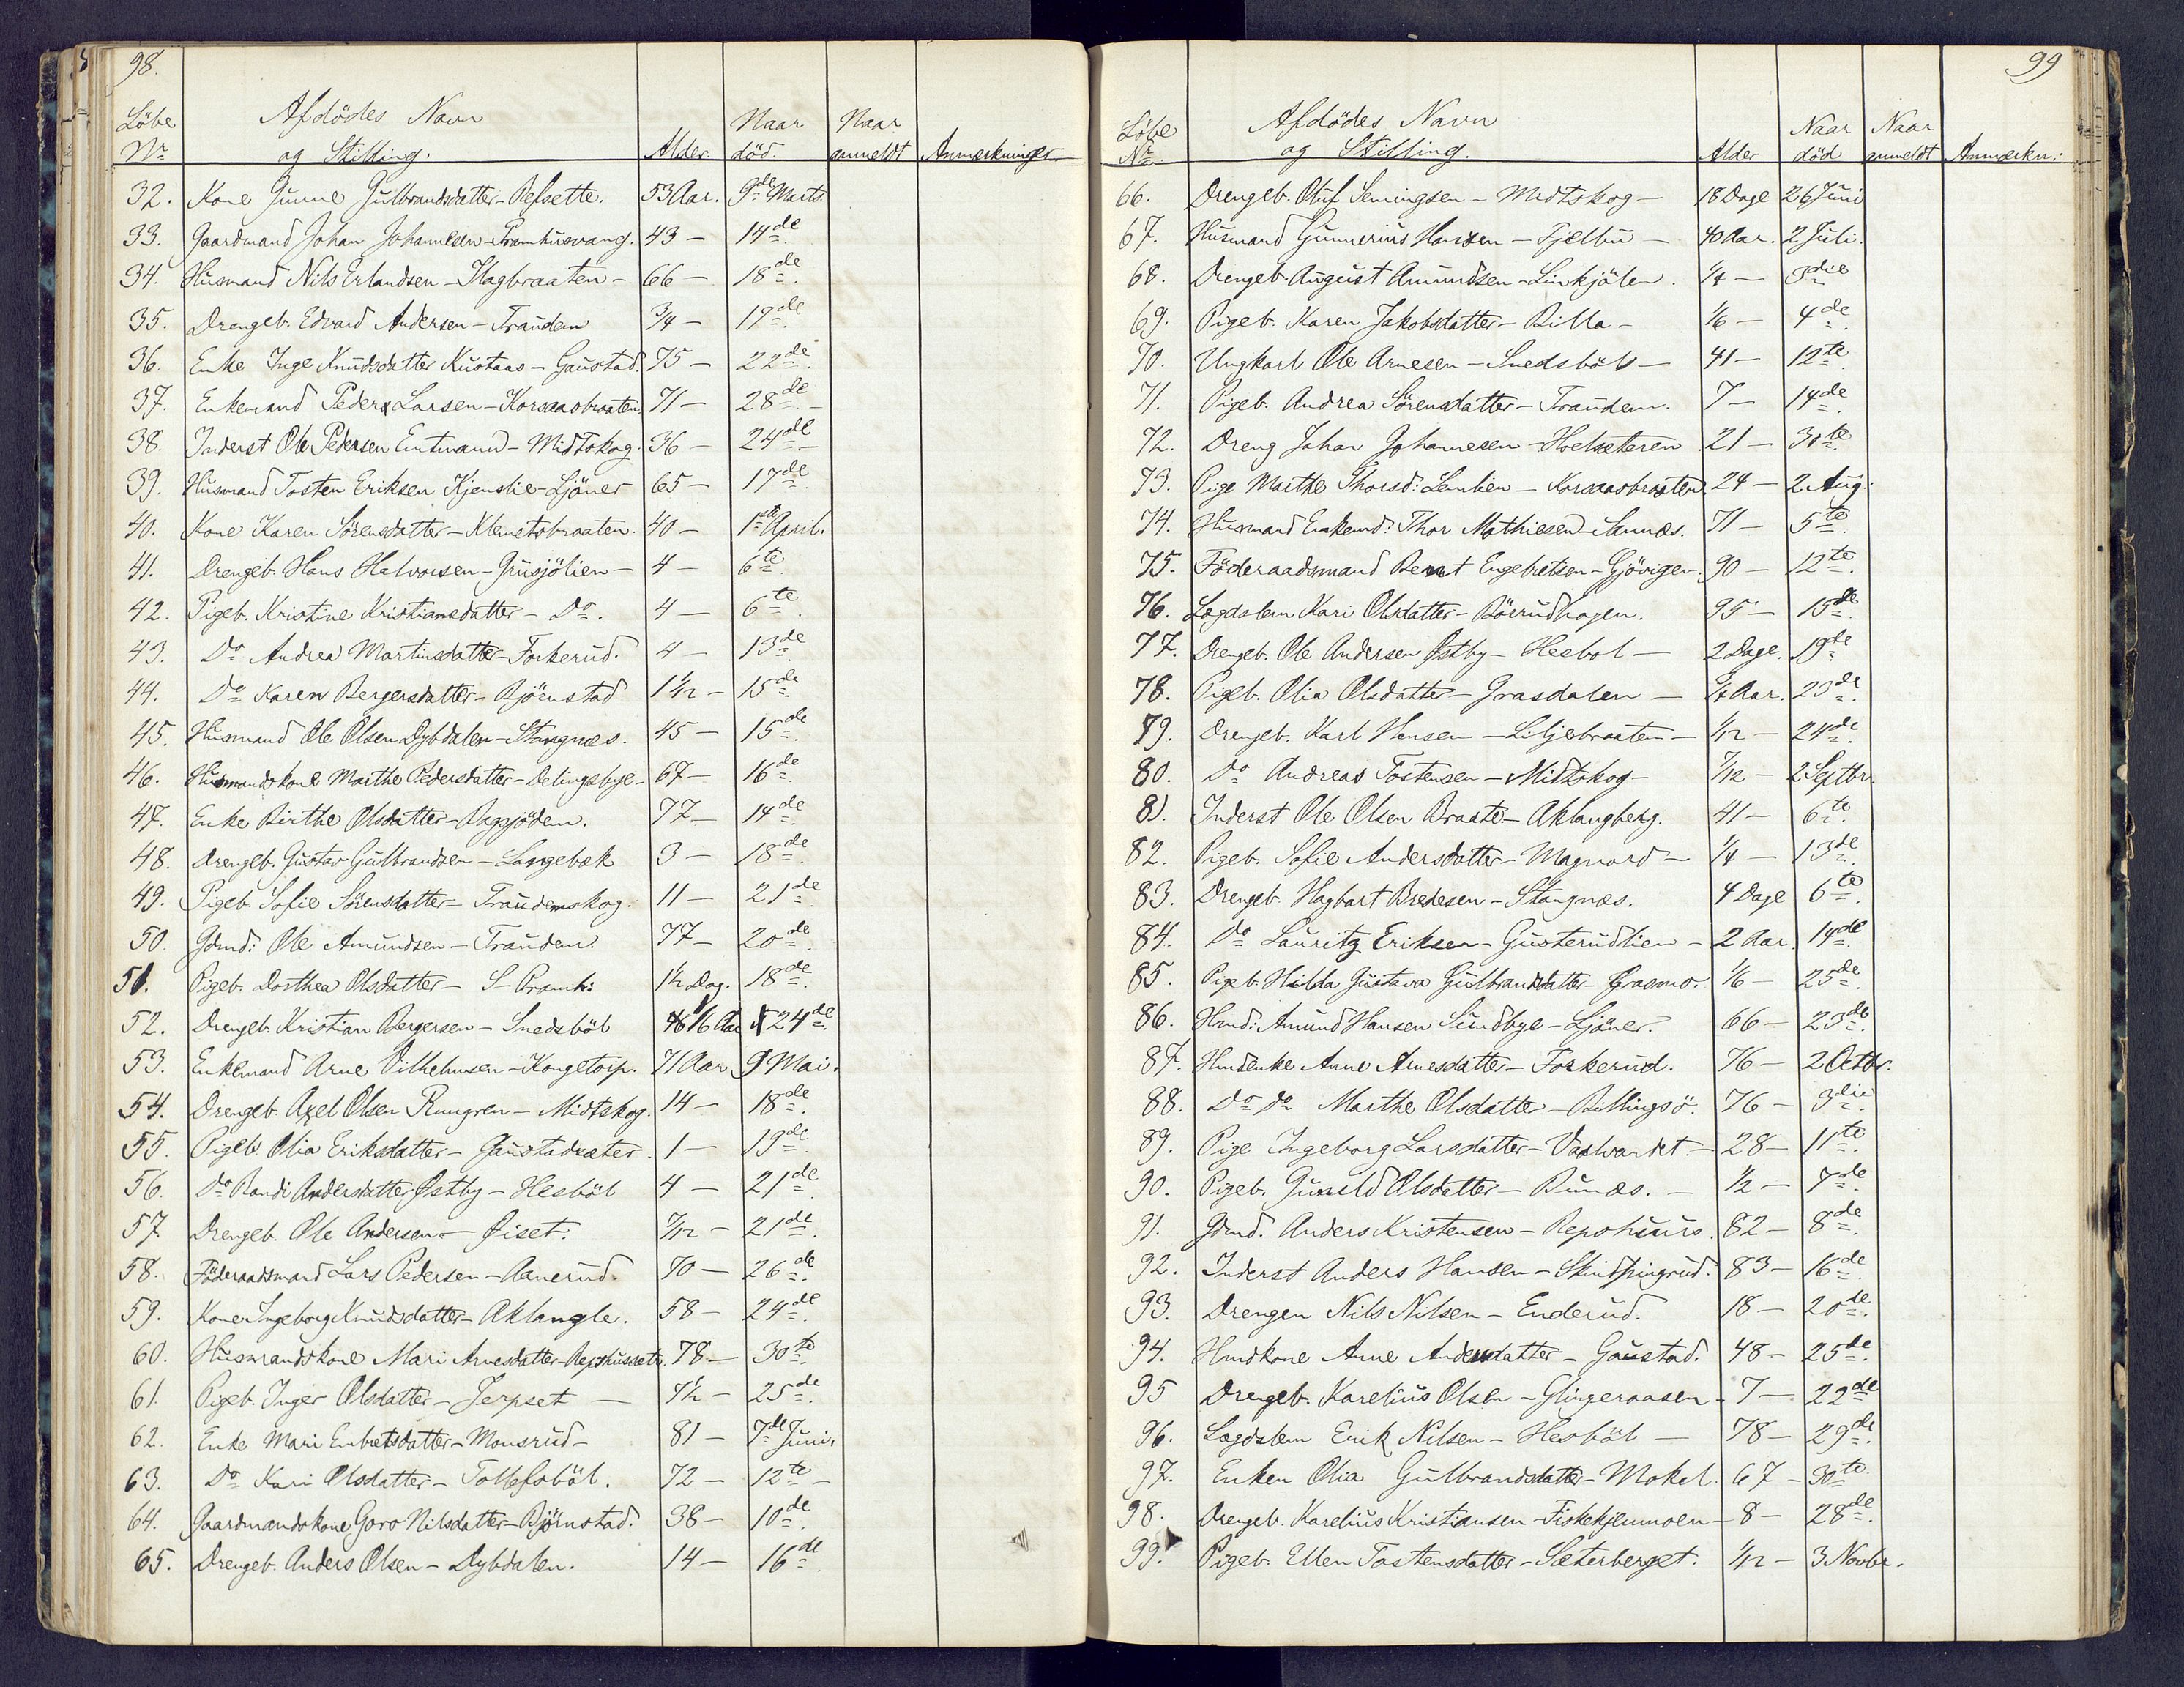 98.
Löbe Nr. Afdödes Navn og Stilling. Alder. Naar död. Naar anmeldt Anmærkninger
32. Kone Gunne Gulbrandsdatter - Refsette. 53 Aar. 9de Marts.
33. Gaardmand Johan Johannesen - Pramhusvang. 43 - 14de.
34. Husmand Nils Erlandsen - Klagbraaten - 66 - 18de.
35. Drengeb. Edvard Andersen - Traudem 3/4 - 19de.
36. Enke Inge Knudsdatter Kustaas - Gaustad. 75 - 22de.
37. Enkemand Peder Larsen - Korsaasbraaten. 71 - 28de. -
38. Inderst Ole Pedersen Eintmann - Midtskog. 36 - 24de -
39. Husmand Tosten Eriksen Kjenslie - Ljöner 65 - 17de
40. Kone Karen Sörensdatter - Klemetsbraaten. 40 - 1ste April.
41. Drengeb. Hans Halvorsen - Grusjölien - 4 - 6te.
42. Pigeb. Kristine Kristiansdatter - Do. 4 - 6te.
43. Do Andrea Martinsdatter - Forkerud. 4 - 13de.
44. Do Karen Bergersdatter - Björnstad 1 1/12 - 15de.
45. Husmand Ole Olsen Dybdalen - Stangnæs. 45 - 15de.
46. Husmandskone Marthe Pedersdatter - Delingsbye - 67 - 16de.
47. Enke Birthe Olsdatter - Bagsjöden. 77 - 14de.
48. Drengeb. Gustav Gulbrandsen - Langebæk 3 - 18de.
49. Pigeb. Sofie Sörensdatter - Traudemskog. 11 - 21de.
50. Gdmd: Ole Amundsen - Traudem. 77 - 20de.
51. Pigeb. Dorthea Olsdatter - S. Pramh: 1 1/2 Dag. 18de.
52. Drengeb. Kristian Bergersen - Snedsböl 1/6 Aar 24de.
53. Enkemand Arne Vilhelmsen - Kongetorp. 71 Aar 9 Mai.
54. Drengeb. Axel Olsen Rungren - Midtskog. 14 - 18de.
55. Pigeb. Olia Eriksdatter - Gaustadsæter. 1 - 19de.
56. Do Randi Andersdatter Østby - Hesböl 4 - 21de.
57 Drengeb. Ole Andersen - Øiset. 7/12 - 21de.
58. Föderaadsmand Lars Pedersen - Aanerud. 70 - 26de.
59. Kone Ingeborg Knudsdatter - Aklangle. 58 - 24de.
60. Husmandskone Mari Arnesdatter - Repshussæt. 78 - 30te.
61. Pigeb. Inger Olsdatter - Jerpset - 7 1/2 - 25de.
62. Enke Mari Embretsdatter - Monsrud - 81 - 7de Juni.
63. Do Kari Olsdatter - Tollefsböl. 72 - 12te -
64. Gaardmandskone Goro Nilsdatter - Björnstad. 38 - 10de.
65. Drengeb. Anders Olsen - Dybdalen. 14 - 16de.
99
Löbe Nr. Afdödes Navn og Stilling. Alder Naar död Naar anmeldt Anmærkn:
66. Drengeb. Oluf Semingsen - Midtskog - 18 Dage 26 Juni
67. Husmand Gunnerius Hansen - Fjelbu - 40 Aar. 2 Juli.
68. Drengeb. August Amundsen - Linkjölen. 1/4 - 3die
69. Pigeb. Karen Jakobsdatter - Billa - 1/6 - 4de.
70. Ungkarl Ole Arnesen - Snedsböl - 41 - 12te.
71. Pigeb. Andrea Sörensdatter - Traudem. 7 - 14de.
72. Dreng Johan Johannesen - Holsæteren 21 - 30te.
73. Pige Marthe Thorsd: Lembien - Korsaasbraaten. 24 - 2 Aug:
74. Husmand Enkemd: Thor Mathiesen - Sannæs. 71 - 5te.
75. Föderaadsmand Bernt Engebretsen - Gjövigen. 90 - 12te.
76. Lægdslem Kari Olsdatter - Börrudhagen. 95 - 15de.
77. Drengeb. Ole Andersen Østby - Heebol - 2 Dage. 19de.
78. Pigeb. Olia Olsdatter - Grasdalen - 1/4 Aar. 23de.
79. Drengeb. Karl Hansen - Liljebraaten - 1/12 - 24de.
80. Do Andreas Tostensen - Midtskog - 7/12 - 2 Septbr.
81. Inderst Ole Olsen Braate - Aklangberg. 41 - 6te.
82. Pigeb. Sofie Andersdatter - Magnord - 1/4 - 13de.
83. Drengeb. Hagbart Bredesen - Stangnæs. 4 Dage 6te.
84. Do Lauritz Eriksen - Gusterudlien - 2 Aar. 14de.
85. Pigeb. Hilda Gustava Gulbrandsdatter - Grasmo. 1/6 - 25de.
86. Hmd: Amund Hansen Sundbye - Ljöner. 66 - 23de.
87. Hmdenke Anne Arnesdatter - Forkerud. 76 - 2 Octbr.
88. Do Do Marthe Olsdatter - Billingsö. 76 - 3die.
89. Pige Ingeborg Larsdatter - Vaalvardet. - 28 - 11te.
90. Pigeb. Gunild Olsdatter - Bunæs. - 1/2 - 7de.
91. Gdmd. Anders Kristensen - Repshuus. 82 - 8de.
92. Inderst Anders Hansen - Skindpungrud. 83 - 16de.
93. Drengen Nils Nilsen - Enderud. 18 - 20de.
94. Hmdkone Anne Andersdatter - Gaustad. 48 - 25de.
95 Drengeb. Karelius Olsen - Glingeraasen - 7 - 22de
96. Lægdslem Erik Nilsen - Hesböl - 78 - 29de.
97. Enken Olia Gulbrandsdatter - Mokel. 67 - 30te.
98. Drengeb. Karelius Kristiansen - Fiskekjennmoen - 8 - 28de.
99. Pigeb. Ellen Tostensdatter - Sæterberget. 1/12 - 3 Novbr.